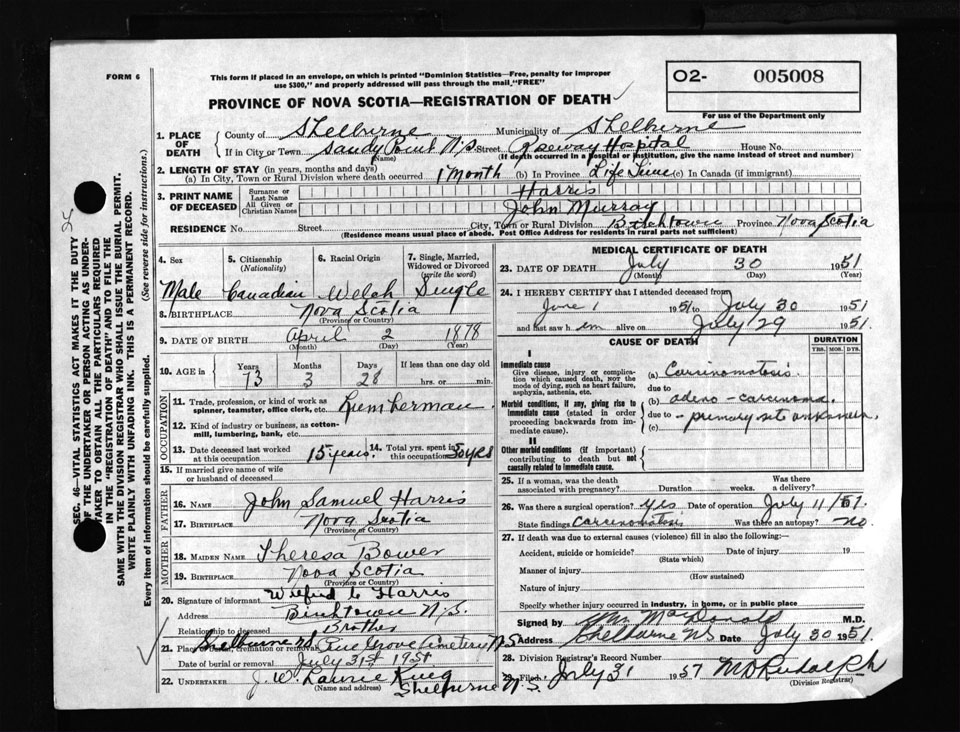 FORM 6
This form if placed in an envelope, on which is printed "Dominion Statistics—Free, penalty for improper
use $300," and properly addressed will pass through the mail "FREE"
O2- 005008
For use of the Department only
PROVINCE OF NOVA SCOTIA—REGISTRATION OF DEATH
1. PLACE OF DEATH
County of Shelburne Municipality of Shelburne
If in City or Town Sandy Point N.S. Street Roseway Hospital House No.
(Name) (If death occurred in a hospital or institution, give the name instead of street and number)
2. LENGTH OF STAY (in years, months and days)
(a) In City, Town or Rural Division where death occurred 1 month (b) In Province Life Time (c) In Canada (if immigrant)
3. PRINT NAME OF DECEASED
Surname or Last Name Harris
All Given or Christian Names John Murray
RESIDENCE No. Street City, Town or Rural Division Birchtown Province Nova Scotia
(Residence means usual place of abode. Post Office Address for residents in rural parts not sufficient)
4. Sex 5. Citizenship (Nationality) 6. Racial Origin 7. Single, Married, Widowed or Divorced (write the word)
Male Canadian Welsh Single
8. BIRTHPLACE Nova Scotia
(Province or Country)
9. DATE OF BIRTH April 2 1878
(Month) (Day) (Year)
10. AGE in Years Months Days If less than one day old
73 3 28 hrs. or min.
OCCUPATION
11. Trade, profession, or kind of work as spinner, teamster, office clerk, etc. Lumberman
12. Kind of industry or business, as cotton-mill, lumbering, bank, etc.
13. Date deceased last worked at this occupation 15 years. 14. Total yrs. spent in this occupation 50 yrs
15. If married give name of wife or husband of deceased
FATHER
16. NAME John Samuel Harris
17. BIRTHPLACE Nova Scotia
(Province or Country)
MOTHER
18. MAIDEN NAME Theresa Bower
19. BIRTHPLACE Nova Scotia
(Province or Country)
20. Signature of informant Harris
Address Birchtown N.S.
Relationship to deceased Brother
21. Place of burial, cremation or removal Shelburne Pine Grove Cemetery N.S
Date of burial or removal July 31st 1951
22. UNDERTAKER J. W. King
(Name and address) Shelburne N.S.
MEDICAL CERTIFICATE OF DEATH
23. DATE OF DEATH July 30 1951
(Month) (Day) (Year)
24. I HEREBY CERTIFY that I attended deceased from
June 1 1951 to July 30 1951
and last saw h im alive on July 29 1951.
CAUSE OF DEATH
DURATION
YRS. MOS. DYS.
I
Immediate cause
Give disease, injury or complication which caused death, NOT the mode of dying, such as heart failure, asphyxia, asthenia, etc.
(a) Carcinomatosis.
due to
Morbid conditions, if any, giving rise to immediate cause (stated in order proceeding backwards from immediate cause).
(b) adeno-carcinoma.
due to - primary site unknown.
(c)
II
Other morbid conditions (if important) contributing to death but NOT causally related to immediate cause.
25. If a woman, was the death associated with pregnancy? Duration weeks. Was there a delivery?
26. Was there a surgical operation? Yes Date of operation July 11/51.
State findings carcinomatosis Was there an autopsy? no.
27. If death was due to external causes (violence) fill in also the following:—
Accident, suicide or homicide? Date of injury 19
(State which)
Manner of injury
(How sustained)
Nature of injury
Specify whether injury occurred in industry, in home, or in public place
Signed by MacDonald M.D.
Address Shelburne NS Date July 30 1951.
28. Division Registrar's Record Number
29. Filed July 31 1957 M D Rudolph
(Division Registrar)
SEC. 46—VITAL STATISTICS ACT MAKES IT THE DUTY
OF THE UNDERTAKER OR PERSON ACTING AS UNDER-
TAKER TO OBTAIN ALL THE PARTICULARS REQUIRED
IN THE "REGISTRATION OF DEATH" AND TO FILE THE
SAME WITH THE DIVISION REGISTRAR WHO SHALL ISSUE THE BURIAL PERMIT.
WRITE PLAINLY WITH UNFADING INK. THIS IS A PERMANENT RECORD.
Every item of information should be carefully supplied. (See reverse side for instructions.)